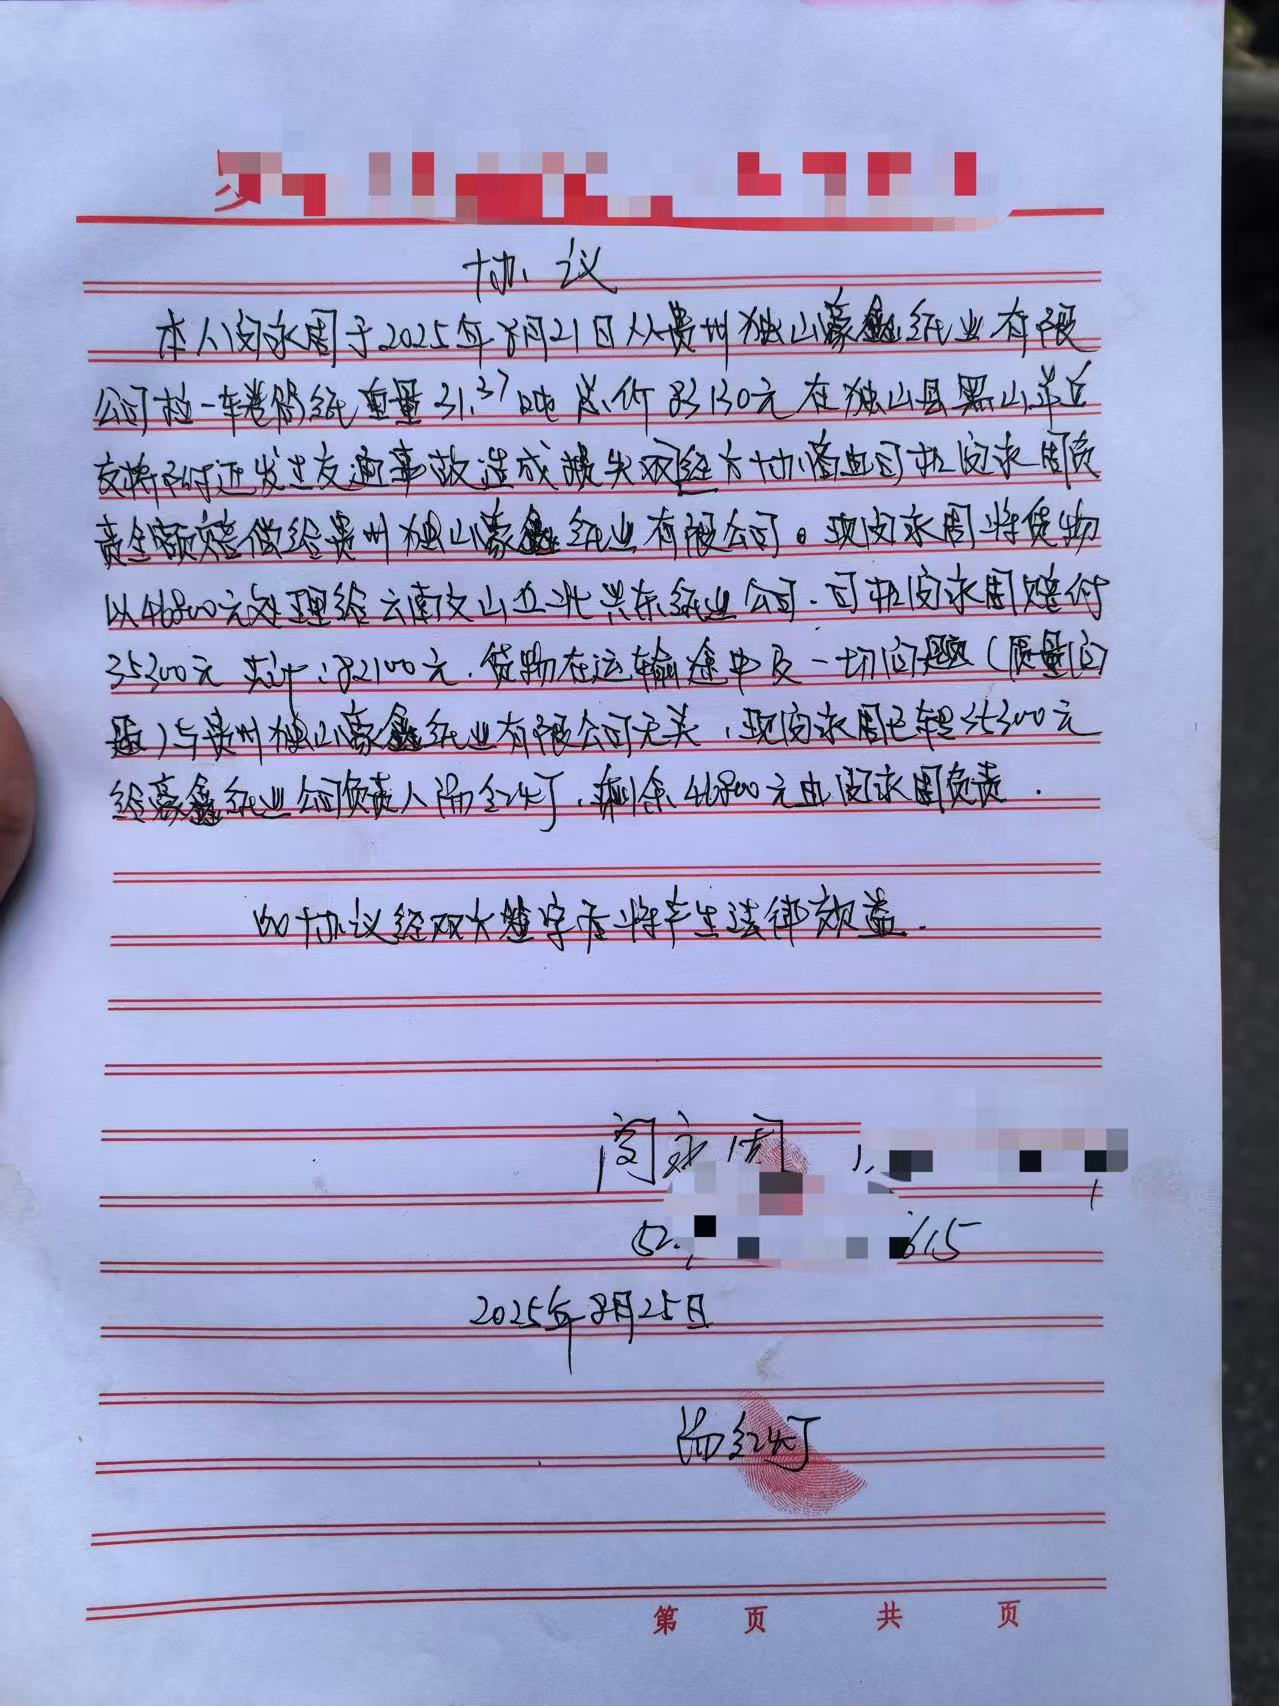 协议
本人闵永周于2025年8月21日从贵州独山豪鑫纸业有限
公司拉一车卷筒纸重量31.37吨总价83130元在独山县黑山羊立
交桥附近发生交通事故造成损失双经方协商由司机闵永周负
责全额赔偿给贵州独山豪鑫纸业有限公司。现闵永周将货物
以46800元处理给云南文山亚兴纸业公司.司机闵永周赔付
35300元 共计:82100元.货物在运输途中及一切问题(质量问
题)与贵州独山豪鑫纸业有限公司无关,现闵永周已转35300元
给豪鑫纸业公司负责人,剩余46800元由闵永周负责.
协议经双方签字后将产生法律效益.
闵永周
52 615
2025年8月25日
第 页 共 页